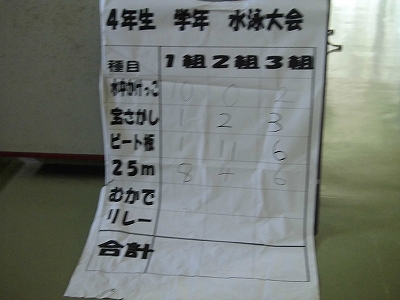 4年生 学年 水泳大会
種目 1組 2組 3組
水中かけっこ 10 0 2
宝さがし 1 2 3
ビート板 1 11 6
25m 8 4 6
むかで
リレー
合計